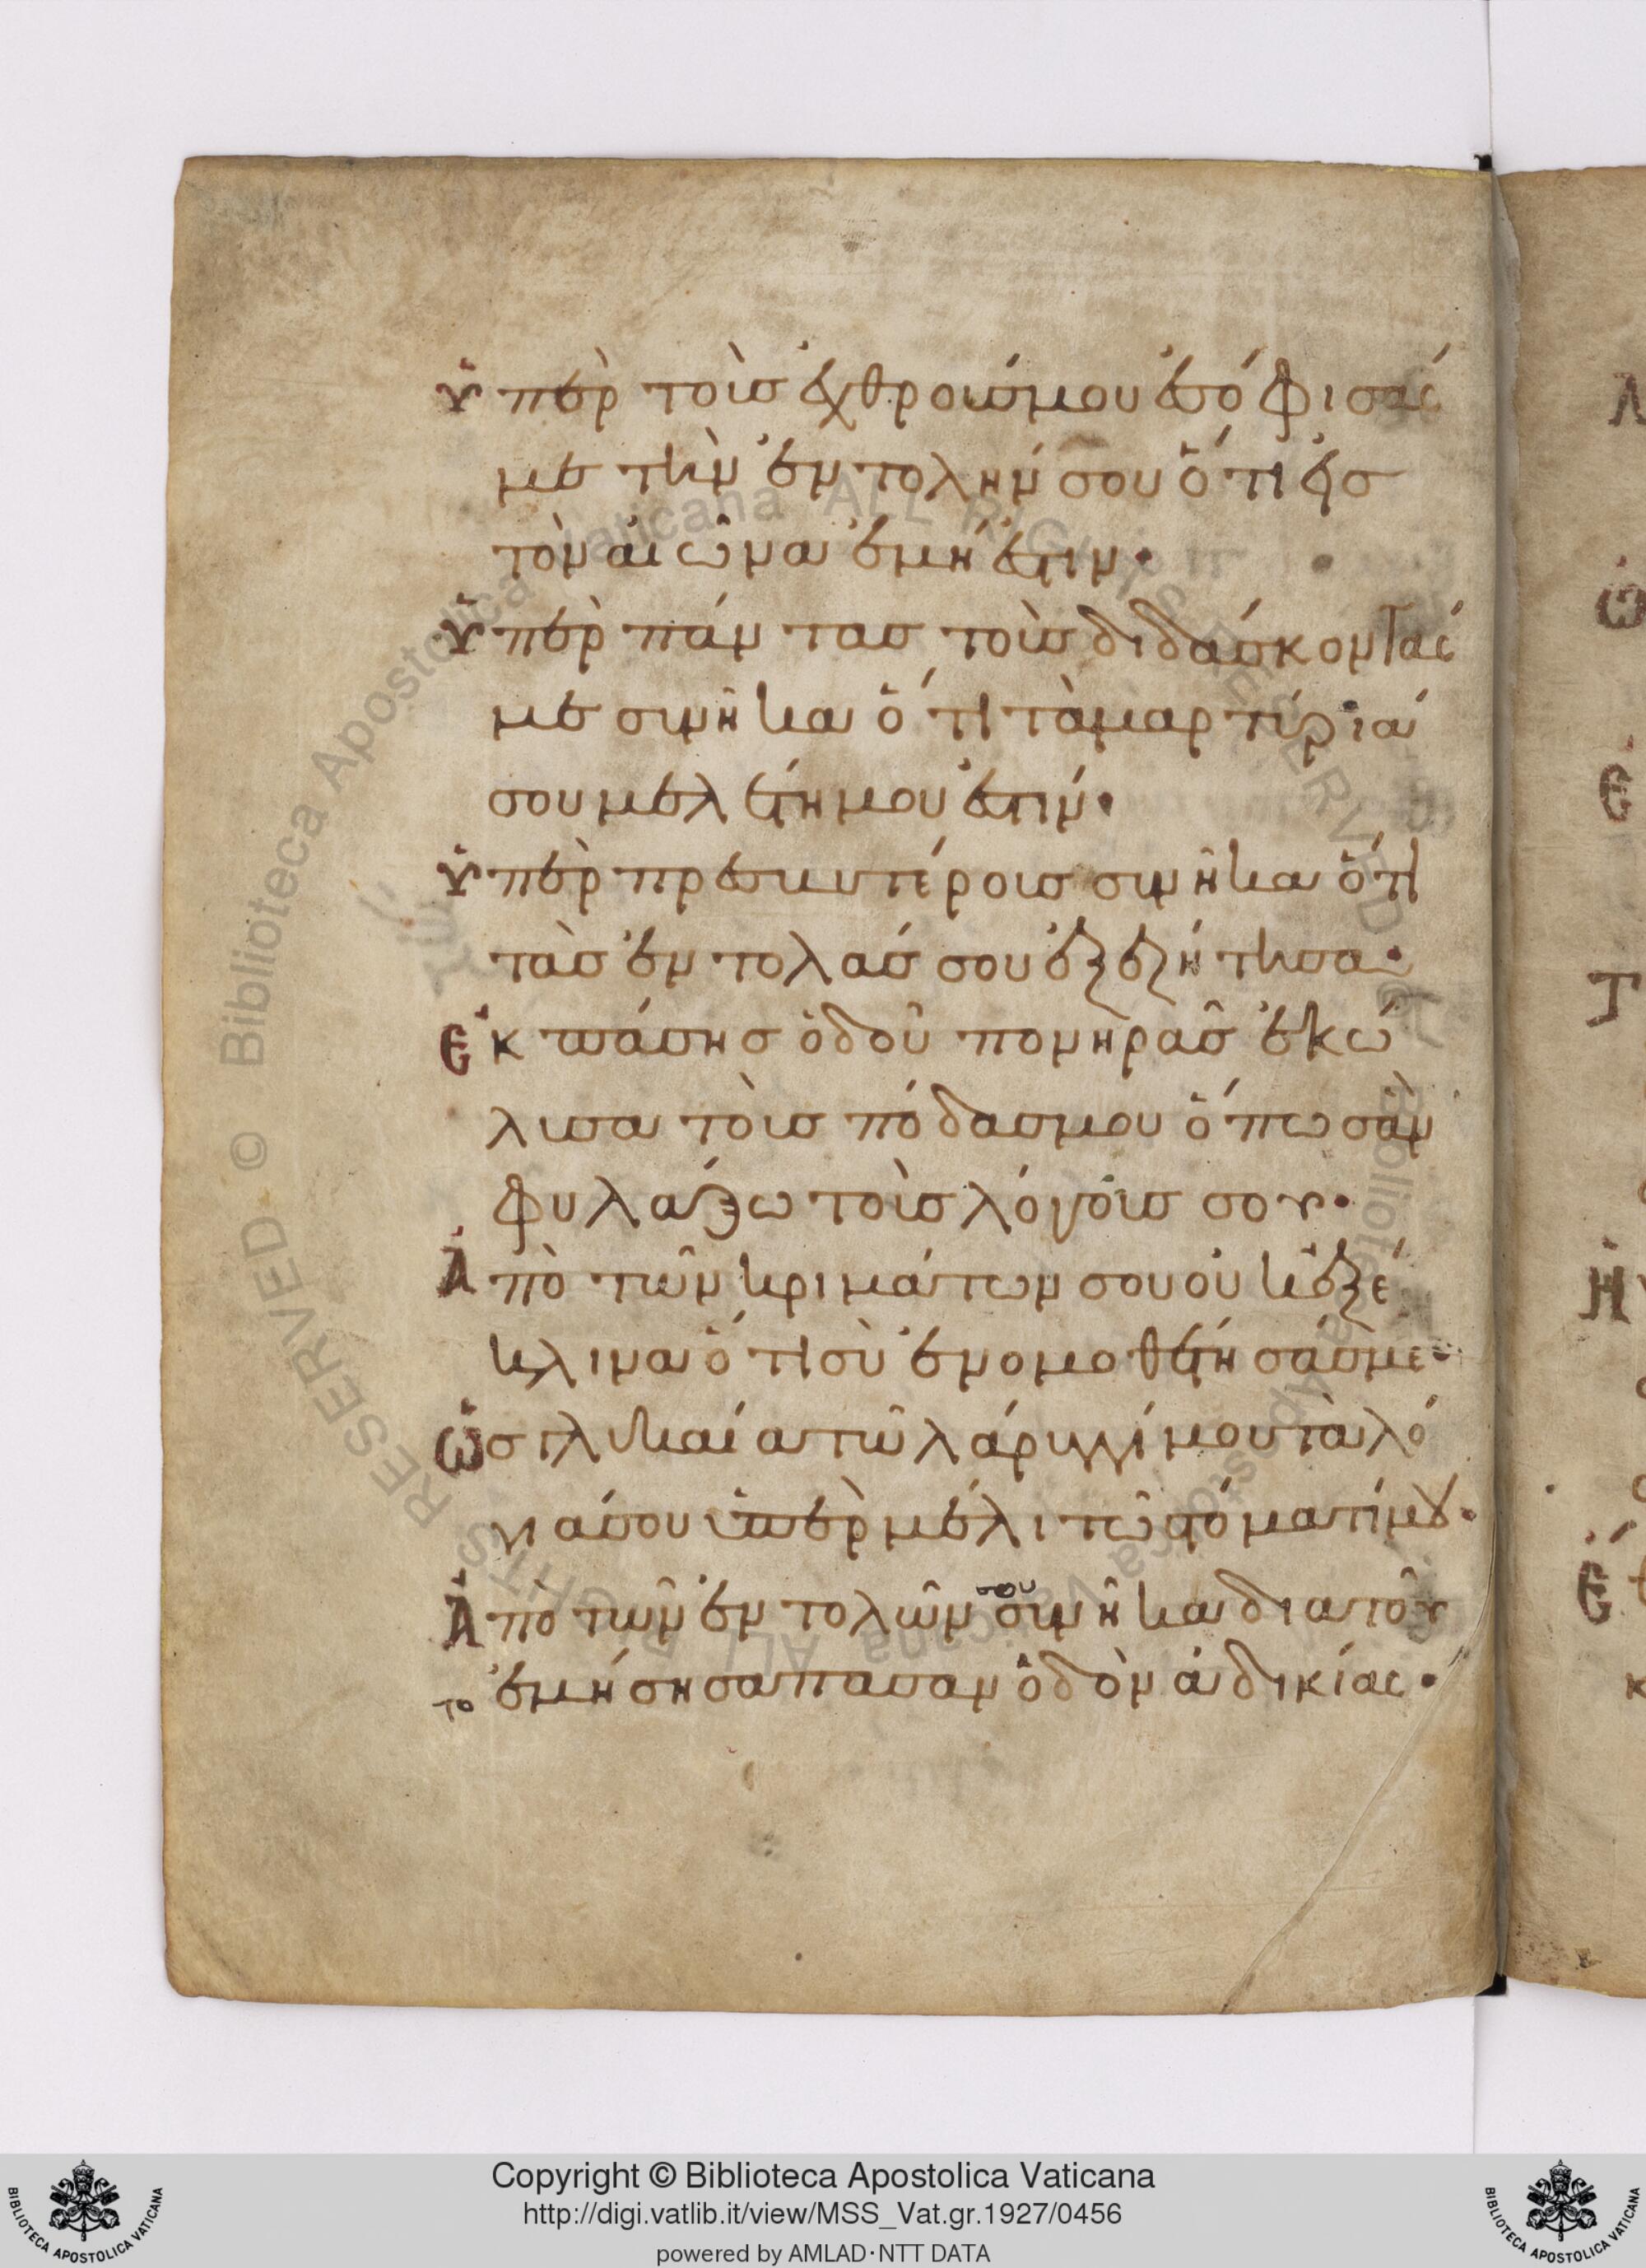 ὑπὲρ τοὺσ ἐχθρούσ μου ἐσόφισάσ
με τὴν ἐντολήν σου ὅτι εἰσ
τὸν αἰῶνα ἐμή ἐστιν·
ὑπὲρ πάντασ τοὺσ διδάσκοντάσ
με συνῆκα ὅτι τὰ μαρτύριά
σου μελέτη μου ἐστίν·
ὑπὲρ πρεσβυτέρουσ συνῆκα ὅτι
τὰσ ἐντολάσ σου ἐξεζήτησα·
Ἐκ πάσησ ὁδοῦ πονηρᾶσ ἐκώ
λυσα τοὺσ πόδασ μου ὅπωσ ἂν
φυλάξω τοὺσ λόγουσ σου·
Ἀπὸ τῶν κριμάτων σου οὐκ ἐξέ
κλινα ὅτι σὺ ἐνομοθέτησάσ με·
Ὡσ γλυκαία τῶ λάρυγγί μου τὰ λό
γιά σου ὑπὲρ μέλι τῶ στόματί μου·
Ἀπὸ τῶν ἐντολῶν σου συνῆκα διατοῦ
το ἐμίσησα πασαν ὁδὸν ἀδικίασ·
Copyright © Biblioteca Apostolica Vaticana
http://digi.vatlib.it/view/MSS_Vat.gr.1927/0456
powered by AMLAD·NTT DATA
BIBLIOTECA APOSTOLICA VATICANA
BIBLIOTECA APOSTOLICA VATICANA